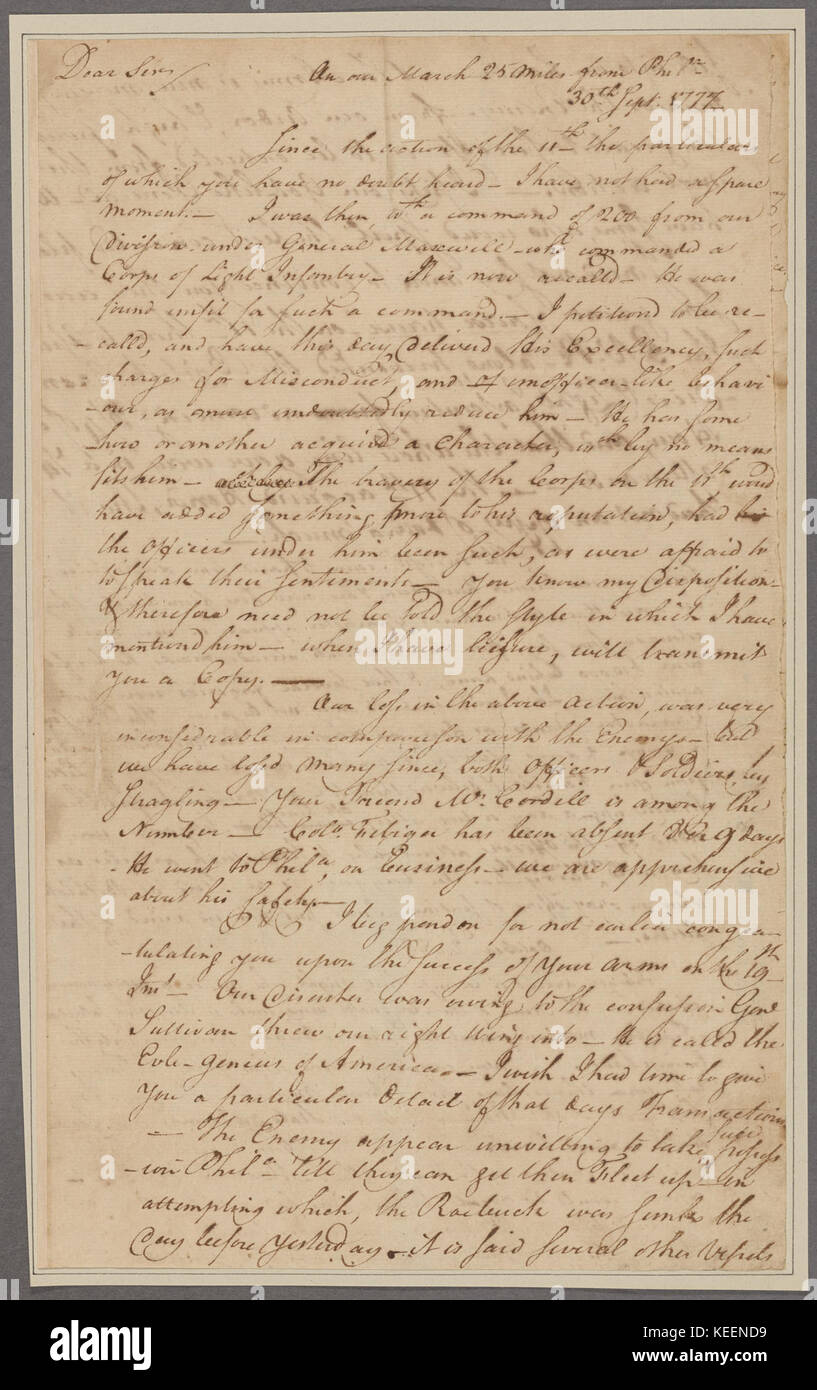 Dear Sir, On our March 25 Miles from Phila
30th Sept. 1777
Since the action of the 11th the particulars
of which you have no doubt heard – I have not had a spare
moment. – I was then, to a command of 200 from our
Division under General Maxwell – who commanded a
Corps of Light Infantry – It is now recalld – He was
found unfit for such a command. – I petitiond to be re-
-calld, and have this day deliverd His Excellency, such
charges for Misconduct, and of unofficer-like behavi-
-our, as must undoubtedly reduce him – He has some
how or another acquired a Character, wch by no means
fits him – The bravery of the Corps on the 11th woud
have added something more to his reputation, had
the officers under him been such, as were affraid to
to speak their sentiments – You know my Disposition –
& therefore need not be told the style in which I have
mentiond him – when I have liesure, will transmit
you a Copy. –
Our loss in the above action, was very
inconsiderable in comparison with the Enemys – but
we have lossd many since, both Officers & Soldiers, by
stragling – Your Friend Mr. Cordill is among the
Number – Colo. Febiger has been absent 8 or 9 days
– He went to Phila, on Business – we are apprehensive
about his safety –
I beg pardon for not earlier congra-
-tulating you upon the success of your arms on the 19th
Inst – Our disaster was owing to the confussion Genl
Sullivan threw our right wing into – He is called the
Evle-genius of America – I wish I had time to give
you a particular Detail of that days Transactions
– The Enemy appear unwilling to take possess
-ion Phila – till they can get their Fleet up – in
attempting which, the Roebuck was sunk the
day before yesterday – it is said several other Vessels
alamy
Image ID: KEEND9
www.alamy.com